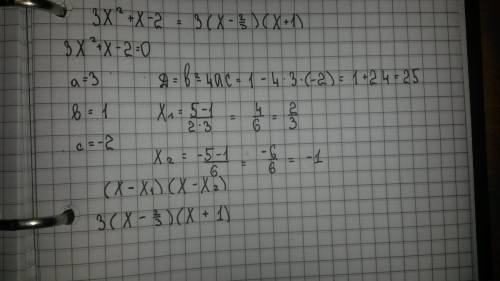 3x² + x - 2 = 3(x - 2/3)(x + 1)
3x² + x - 2 = 0
a = 3
D = b² - 4ac = 1 - 4 · 3 · (-2) = 1 + 24 = 25
b = 1
x₁ = (5 - 1)/(2 · 3) = 4/6 = 2/3
c = -2
x₂ = (-5 - 1)/6 = -6/6 = -1
(x - x₁)(x - x₂)
3(x - 2/3)(x + 1)